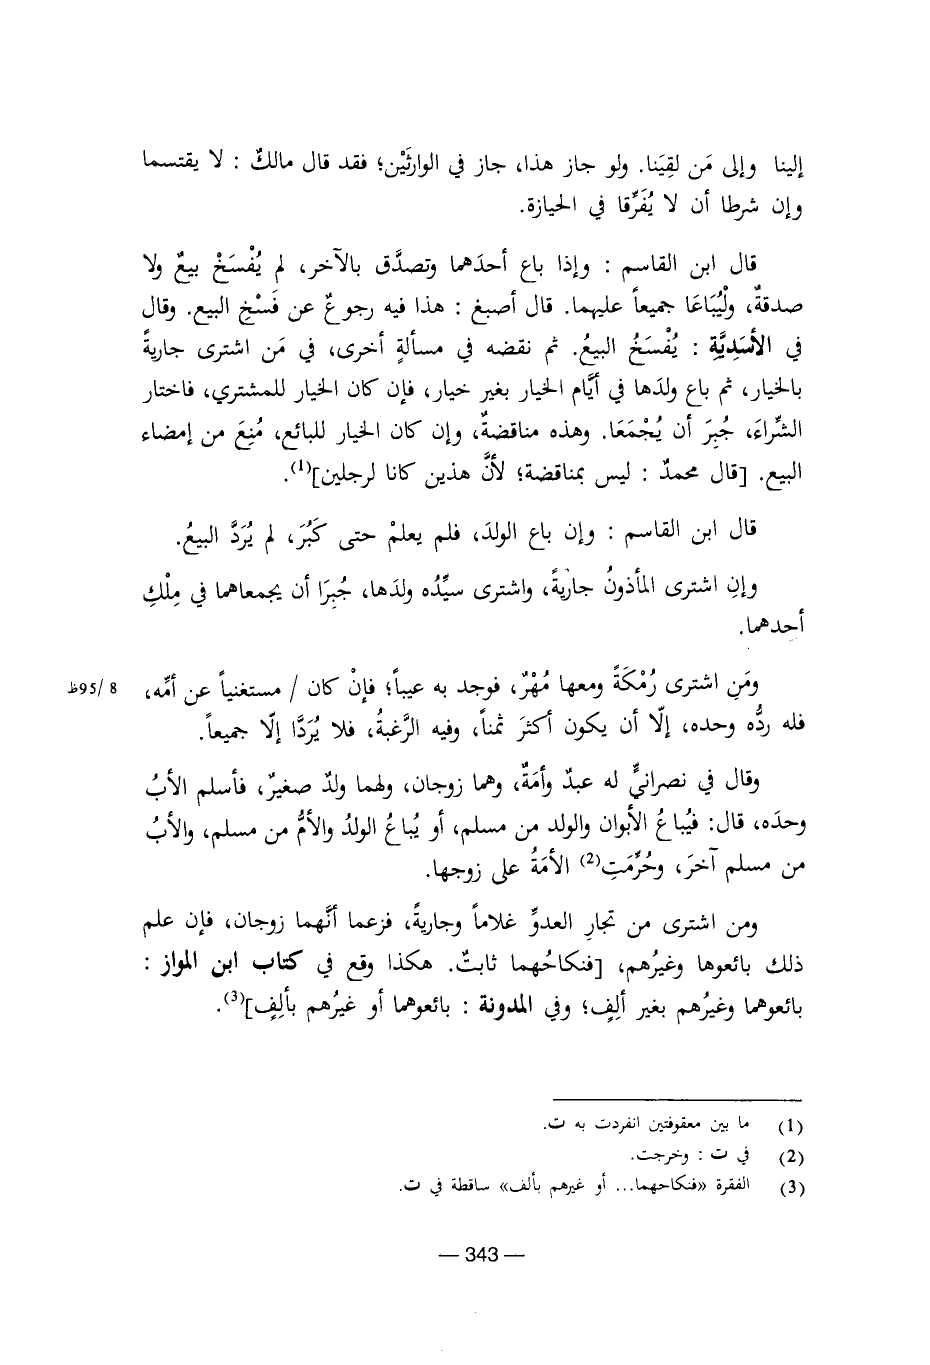 إلينا وإلى مَن لقِيَنا. ولو جاز هذا، جاز في الوارثَيْن؛ فقد قال مالكٌ : لا يقتسما
وإن شرطا أن لا يُفَرِّقا في الحيازة.
قال ابن القاسم : وإذا باع أحدَهما وتصدَّق بالآخر، لم يُفْسَخْ بيعٌ ولا
صدقةٌ، ولْيُبَاعَا جميعاً عليهما. قال أصبغ : هذا فيه رجوعٌ عن فَسْخِ البيع. وقال
في الأسَدِيَّةِ : يُفْسَخُ البيعُ. ثم نقضه في مسألةٍ أخرى، في مَن اشترى جاريةً
بالخيار، ثم باع ولدَها في أيَّام الخيار بغير خيار، فإن كان الخيار للمشتري، فاختار
الشِّراءَ، جُبِرَ أن يُجْمَعَا. وهذه مناقضةٌ، وإن كان الخيار للبائع، مُنِعَ من إمضاء
البيع. [قال محمدٌ : ليس بمناقضة؛ لأنَّ هذين كانا لرجلين](1).
قال ابن القاسم : وإن باع الولدَ، فلم يعلمْ حتى كَبُرَ، لم يُرَدَّ البيعُ.
وإنِ اشترى المأذونُ جاريةً، واشترى سيِّدُه ولدَها، جُبِرَا أن يجمعاهما في مِلْكِ
أحدهما.
ومَنِ اشترى رُمْكَةً ومعها مُهْرٌ، فوجد به عيباً؛ فإنْ كان / مستغنياً عن أمِّه، 8 /95ظ
فله ردُّه وحده، إلّا أن يكون أكثرَ ثمناً، وفيه الرَّغبةُ، فلا يُرَدَّا إلّا جميعاً.
وقال في نصرانيٍّ له عبدٌ وأمَةٌ، وهما زوجان، ولهما ولدٌ صغيرٌ، فأسلم الأبُ
وحدَه، قال: فيُباعُ الأبوان والولد من مسلم، أو يُباعُ الولدُ والأمُّ من مسلم، والأبُ
من مسلم آخرَ، وحُرِّمَتِ(2) الأمَةُ على زوجها.
ومن اشترى من تجارِ العدوِّ غلاماً وجاريةً، فزعما أنَّهما زوجان، فإن علم
ذلك بائعوها وغيرُهم، [فنكاحُهما ثابتٌ. هكذا وقع في كتاب ابن المواز :
بائعوهما وغيرُهم بغير ألِفٍ؛ وفي المدونة : بائعوهما أو غيرُهم بألِفٍ](3).
(1) ما بين معقوفتين انفردت به ت.
(2) في ت : وخرجت.
(3) الفقرة «فنكاحهما... أو غيرهم بألف» ساقطة في ت.
— 343 —